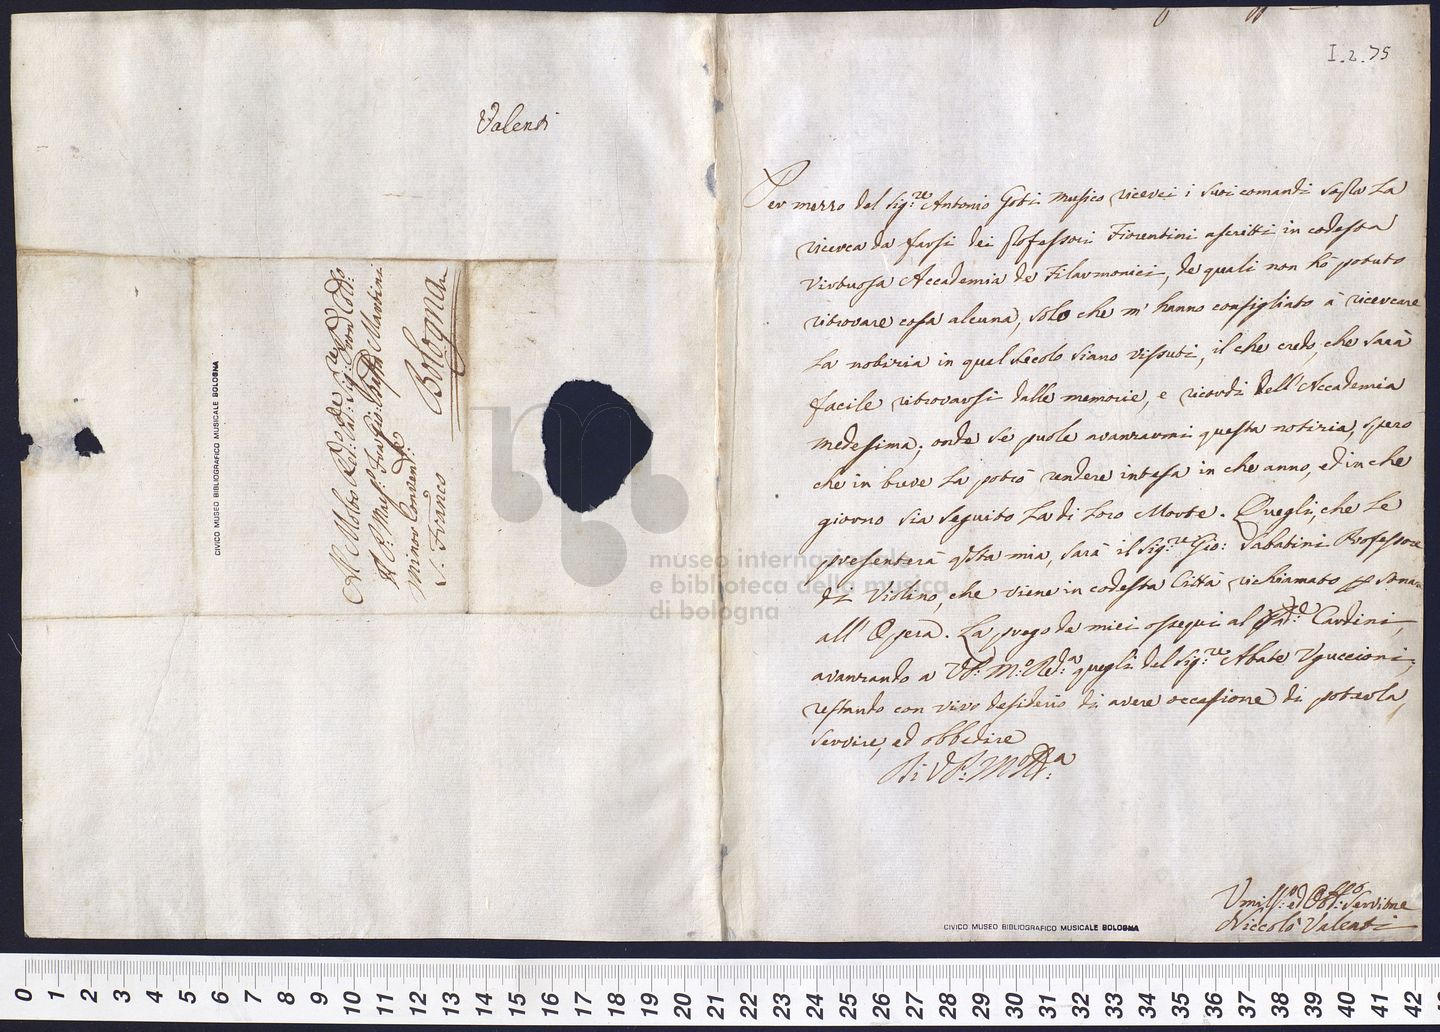 Valenti
I.2.75
Per mezzo del Sig:re Antonio Goti Musico ricevei i suoi comandi sopra la
ricerca da farsi dei Professori Fiorentini ascritti in codesta
virtuosa Accademia de Filarmonici, de quali non hò potuto
ritrovare cosa alcuna, solo che m'hanno consigliato à ricercare
la notizia in qual secolo siano vissuti, il che credo, che sarà
facile ritrovarsi dalle memorie, e ricordi dell'Accademia
medesima; onde se puole avanzarmi questa notizia, spero
che in breve la potrò rendere intesa in che anno, ed in che
giorno sia seguito la di loro Morte. Quegli, che le
presenterà q̃sta mia, sarà il Sig:re Gio: Sabatini Professore
di Violino, che viene in codesta Città richiamato p sonare
all'Opera. La prego de miei ossequi al Pad:e Cardini,
avanzando a VP: M:o Red:a quegli del Sig:re Abate Uguccioni,
restando con vivo desiderio di avere occasione di poterla
servire, ed obbedire
Di VP: M:o R:a
Umiliss:o ed Obb:o Servitore
Niccolò Valenti
Al Molto Rev:do
Al P: Maes: Fra Gio: Batta Martini
Minor Convent:le
S. Franco
Bologna
CIVICO MUSEO BIBLIOGRAFICO MUSICALE BOLOGNA
CIVICO MUSEO BIBLIOGRAFICO MUSICALE BOLOGNA
museo internazionale
e biblioteca della musica
di bologna
0 1 2 3 4 5 6 7 8 9 10 11 12 13 14 15 16 17 18 19 20 21 22 23 24 25 26 27 28 29 30 31 32 33 34 35 36 37 38 39 40 41 42